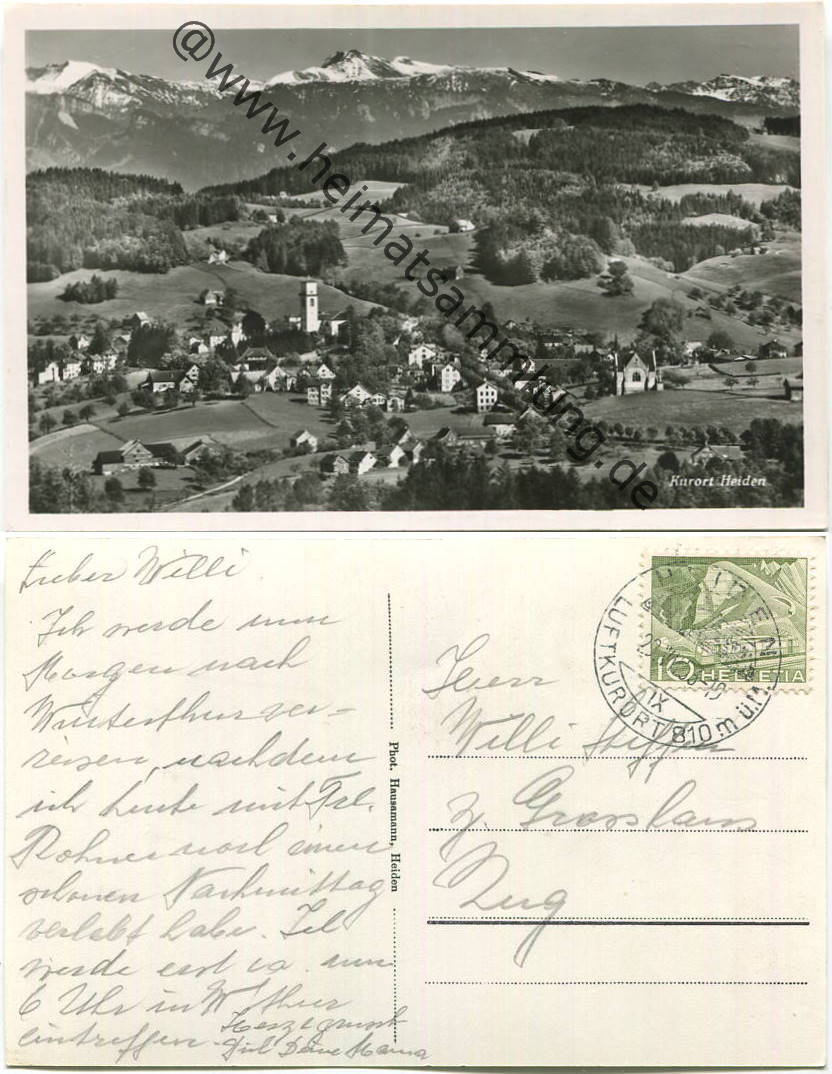 @www.heimatsammlung.de
Kurort Heiden
Lieber Willi.
Ich werde nun
Morgen nach
Winterthur ver-
reisen, nachdem
ich heute mit Frl.
Rohner noch einen
schönen Nachmittag
verlebt habe. Ich
werde erst ca. um
6 Uhr in W'thur
eintreffen.
Herzl grüsst
Dich Deine Mama
Phot. Hausamann, Heiden
HEIDEN
LUFTKURORT 810 m ü.M.
IX
10 HELVETIA
Herr
Willi Steffen
z. Grosshaus
Zug